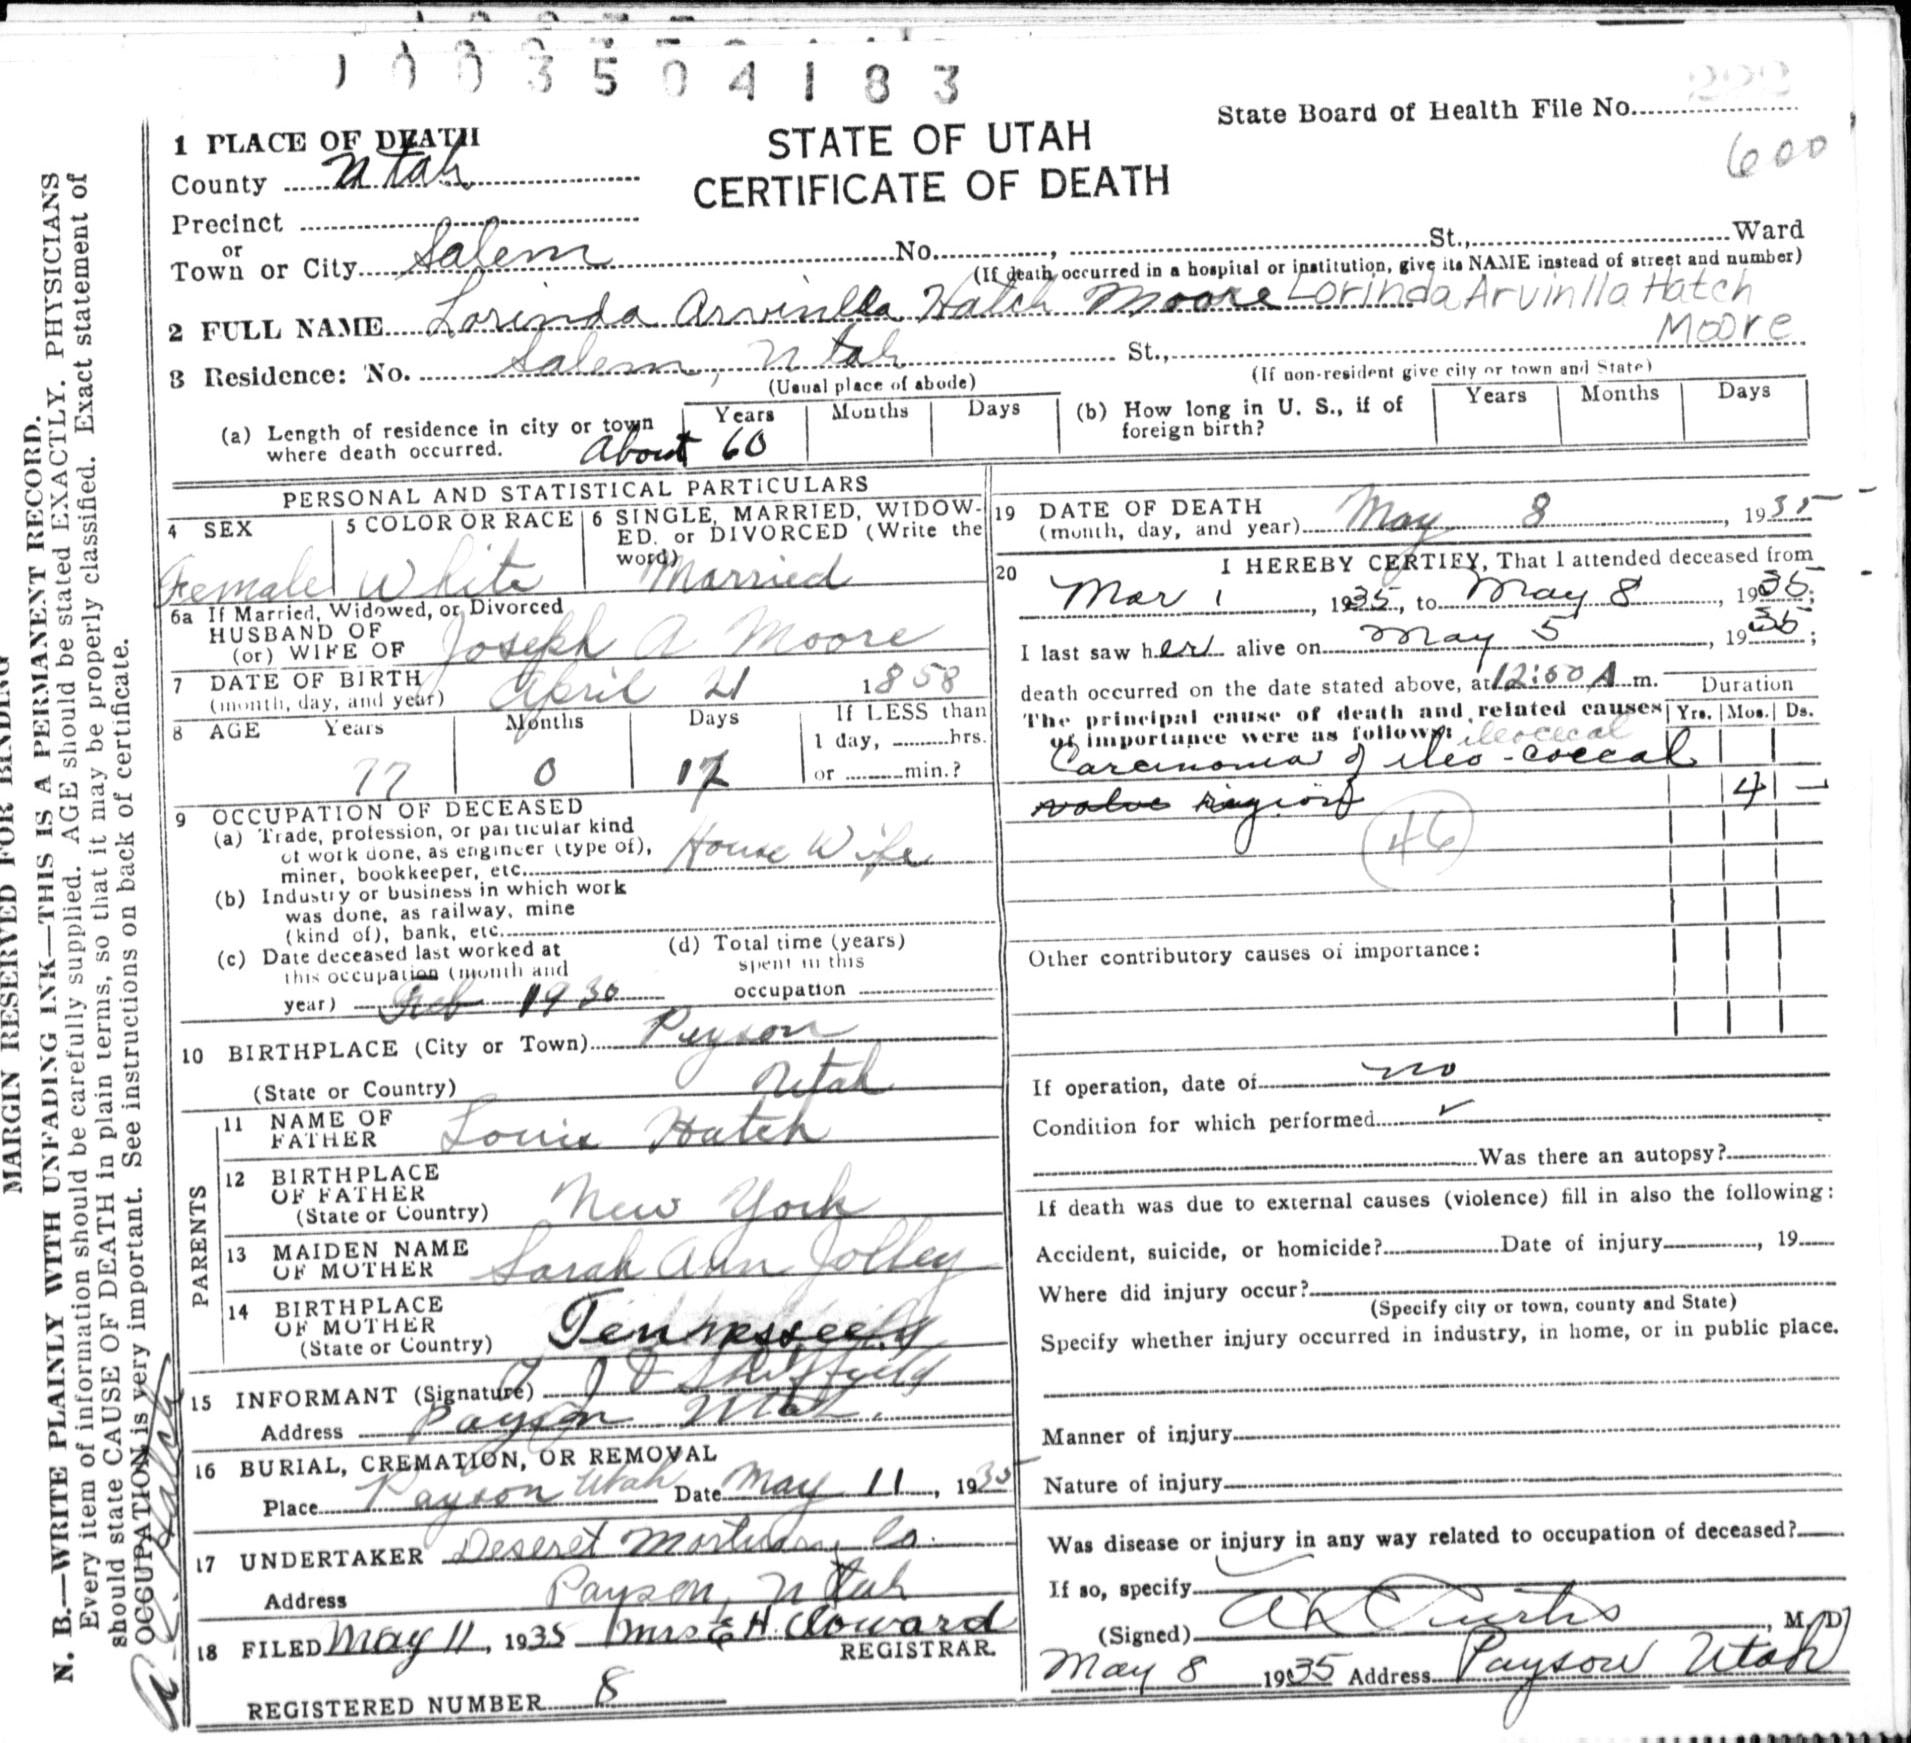 1003504183
222
State Board of Health File No.
600
1 PLACE OF DEATH
STATE OF UTAH
CERTIFICATE OF DEATH
County Utah
Precinct
or
Town or City Salem No. , St., Ward
(If death occurred in a hospital or institution, give its NAME instead of street and number)
2 FULL NAME Lorinda Arvinlla Hatch Moore Lorinda Arvinlla Hatch
Moore
3 Residence: No. Salem, Utah St.,
(Usual place of abode) (If non-resident give city or town and State)
(a) Length of residence in city or town where death occurred. Years Months Days
About 60
(b) How long in U. S., if of foreign birth? Years Months Days
PERSONAL AND STATISTICAL PARTICULARS
4 SEX
Female
5 COLOR OR RACE
White
6 SINGLE, MARRIED, WIDOW-
ED, or DIVORCED (Write the
word) Married
6a If Married, Widowed, or Divorced
HUSBAND OF
(or) WIFE OF Joseph A Moore
7 DATE OF BIRTH
(month, day, and year) April 21 1858
8 AGE Years Months Days If LESS than
1 day, hrs.
77 0 17 or min.?
9 OCCUPATION OF DECEASED
(a) Trade, profession, or particular kind
of work done, as engineer (type of),
miner, bookkeeper, etc. House Wife
(b) Industry or business in which work
was done, as railway, mine
(kind of), bank, etc.
(c) Date deceased last worked at
this occupation (month and
year) Feb 1930
(d) Total time (years)
spent in this
occupation
10 BIRTHPLACE (City or Town) Payson
(State or Country) Utah
PARENTS
11 NAME OF
FATHER Louis Hatch
12 BIRTHPLACE
OF FATHER
(State or Country) New York
13 MAIDEN NAME
OF MOTHER Sarah Ann Jolley
14 BIRTHPLACE
OF MOTHER
(State or Country) Tennessee
15 INFORMANT (Signature)
Address Payson Utah.
16 BURIAL, CREMATION, OR REMOVAL
Place Payson Utah Date May 11, 1935
17 UNDERTAKER Deseret Mortuary Co.
Address Payson, Utah
18 FILED May 11, 1935 Mrs E H. Cloward
REGISTRAR.
REGISTERED NUMBER 8
19 DATE OF DEATH
(month, day, and year) May 8, 1935
20 I HEREBY CERTIFY, That I attended deceased from
Mar 1, 1935, to May 8, 1935;
I last saw her alive on May 5, 1935;
death occurred on the date stated above, at 12:50 A m.
Duration
The principal cause of death and related causes
Yrs. Mos. Ds.
of importance were as follows: ileocecal
Carcinoma of ileo-coecal
valve region 4 —
46
Other contributory causes of importance:
If operation, date of no
Condition for which performed ✓
Was there an autopsy?
If death was due to external causes (violence) fill in also the following:
Accident, suicide, or homicide? Date of injury , 19
Where did injury occur?
(Specify city or town, county and State)
Specify whether injury occurred in industry, in home, or in public place.
Manner of injury
Nature of injury
Was disease or injury in any way related to occupation of deceased?
If so, specify
(Signed) A L Curtis, M. D.
May 8 1935 Address Payson Utah
MARGIN RESERVED FOR BINDING
N. B.—WRITE PLAINLY WITH UNFADING INK—THIS IS A PERMANENT RECORD.
Every item of information should be carefully supplied. AGE should be stated EXACTLY. PHYSICIANS
should state CAUSE OF DEATH in plain terms, so that it may be properly classified. Exact statement of
OCCUPATION is very important. See instructions on back of certificate.